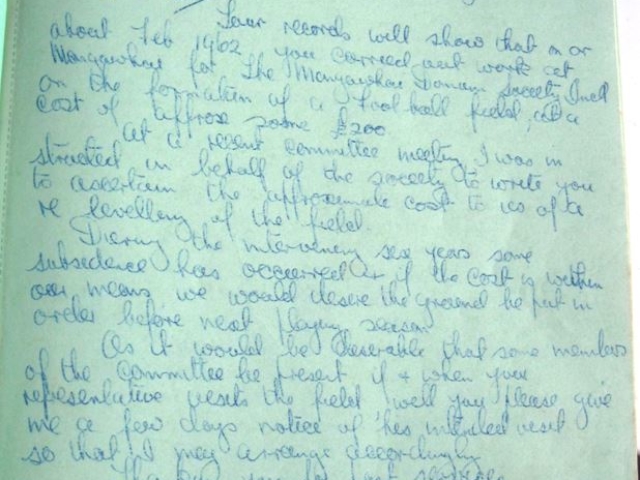 Your records will show that on or
about Feb 1962 you carried out work at
Mangawhai for The Mangawhai Domain Society Incl
on the formation of a Football field, at a
cost of approx some £200
At a recent committee meeting I was in
structed in behalf of the society to write you
to ascertain the approximate cost to us of a
re levelling of the field.
During the intervening six years some
subsidence has occurred & if the cost is within
our means we would desire the ground be put in
order before next playing season
As it would be desirable that some members
of the committee be present if & when your
representative visits the field will you please give
me a few days notice of his intended visit
so that I may arrange accordingly